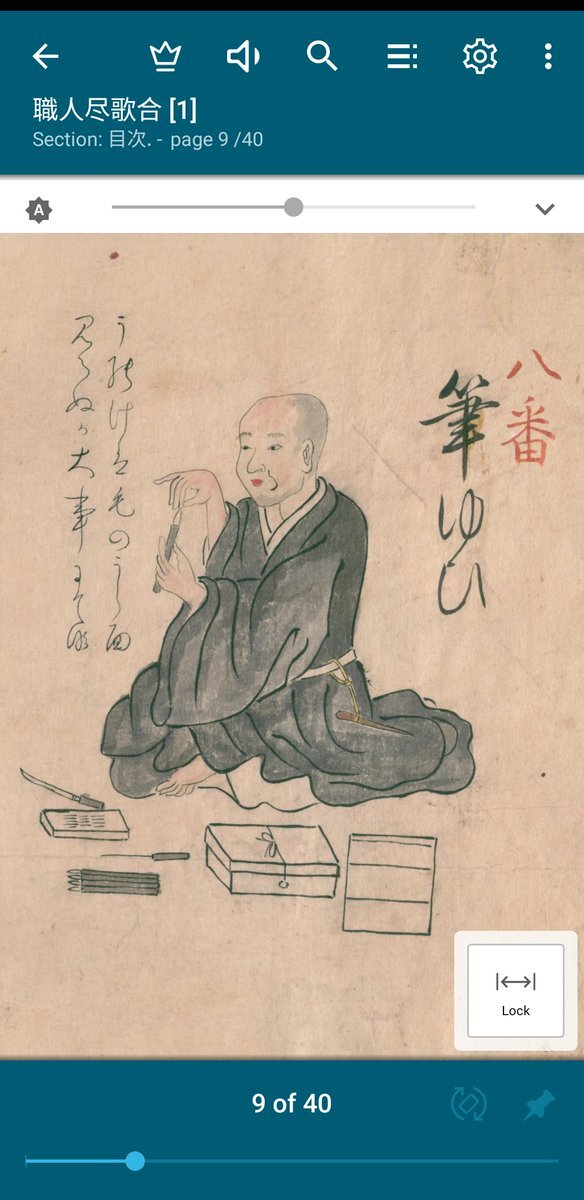 職人尽歌合 [1]
Section: 目次. - page 9 /40
A
八番
筆ゆひ
うのけは毛のうら面
みえぬか大事にて候
Lock
9 of 40